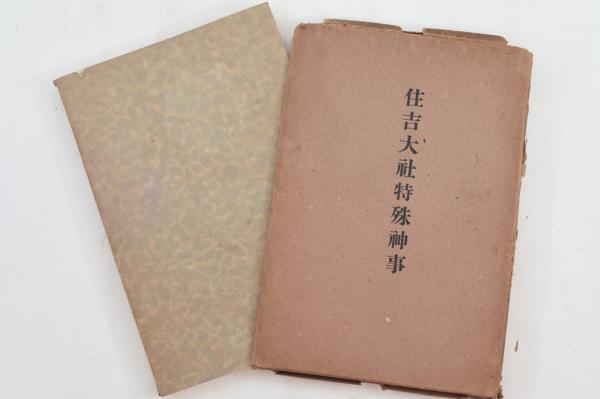 住吉大社特殊神事